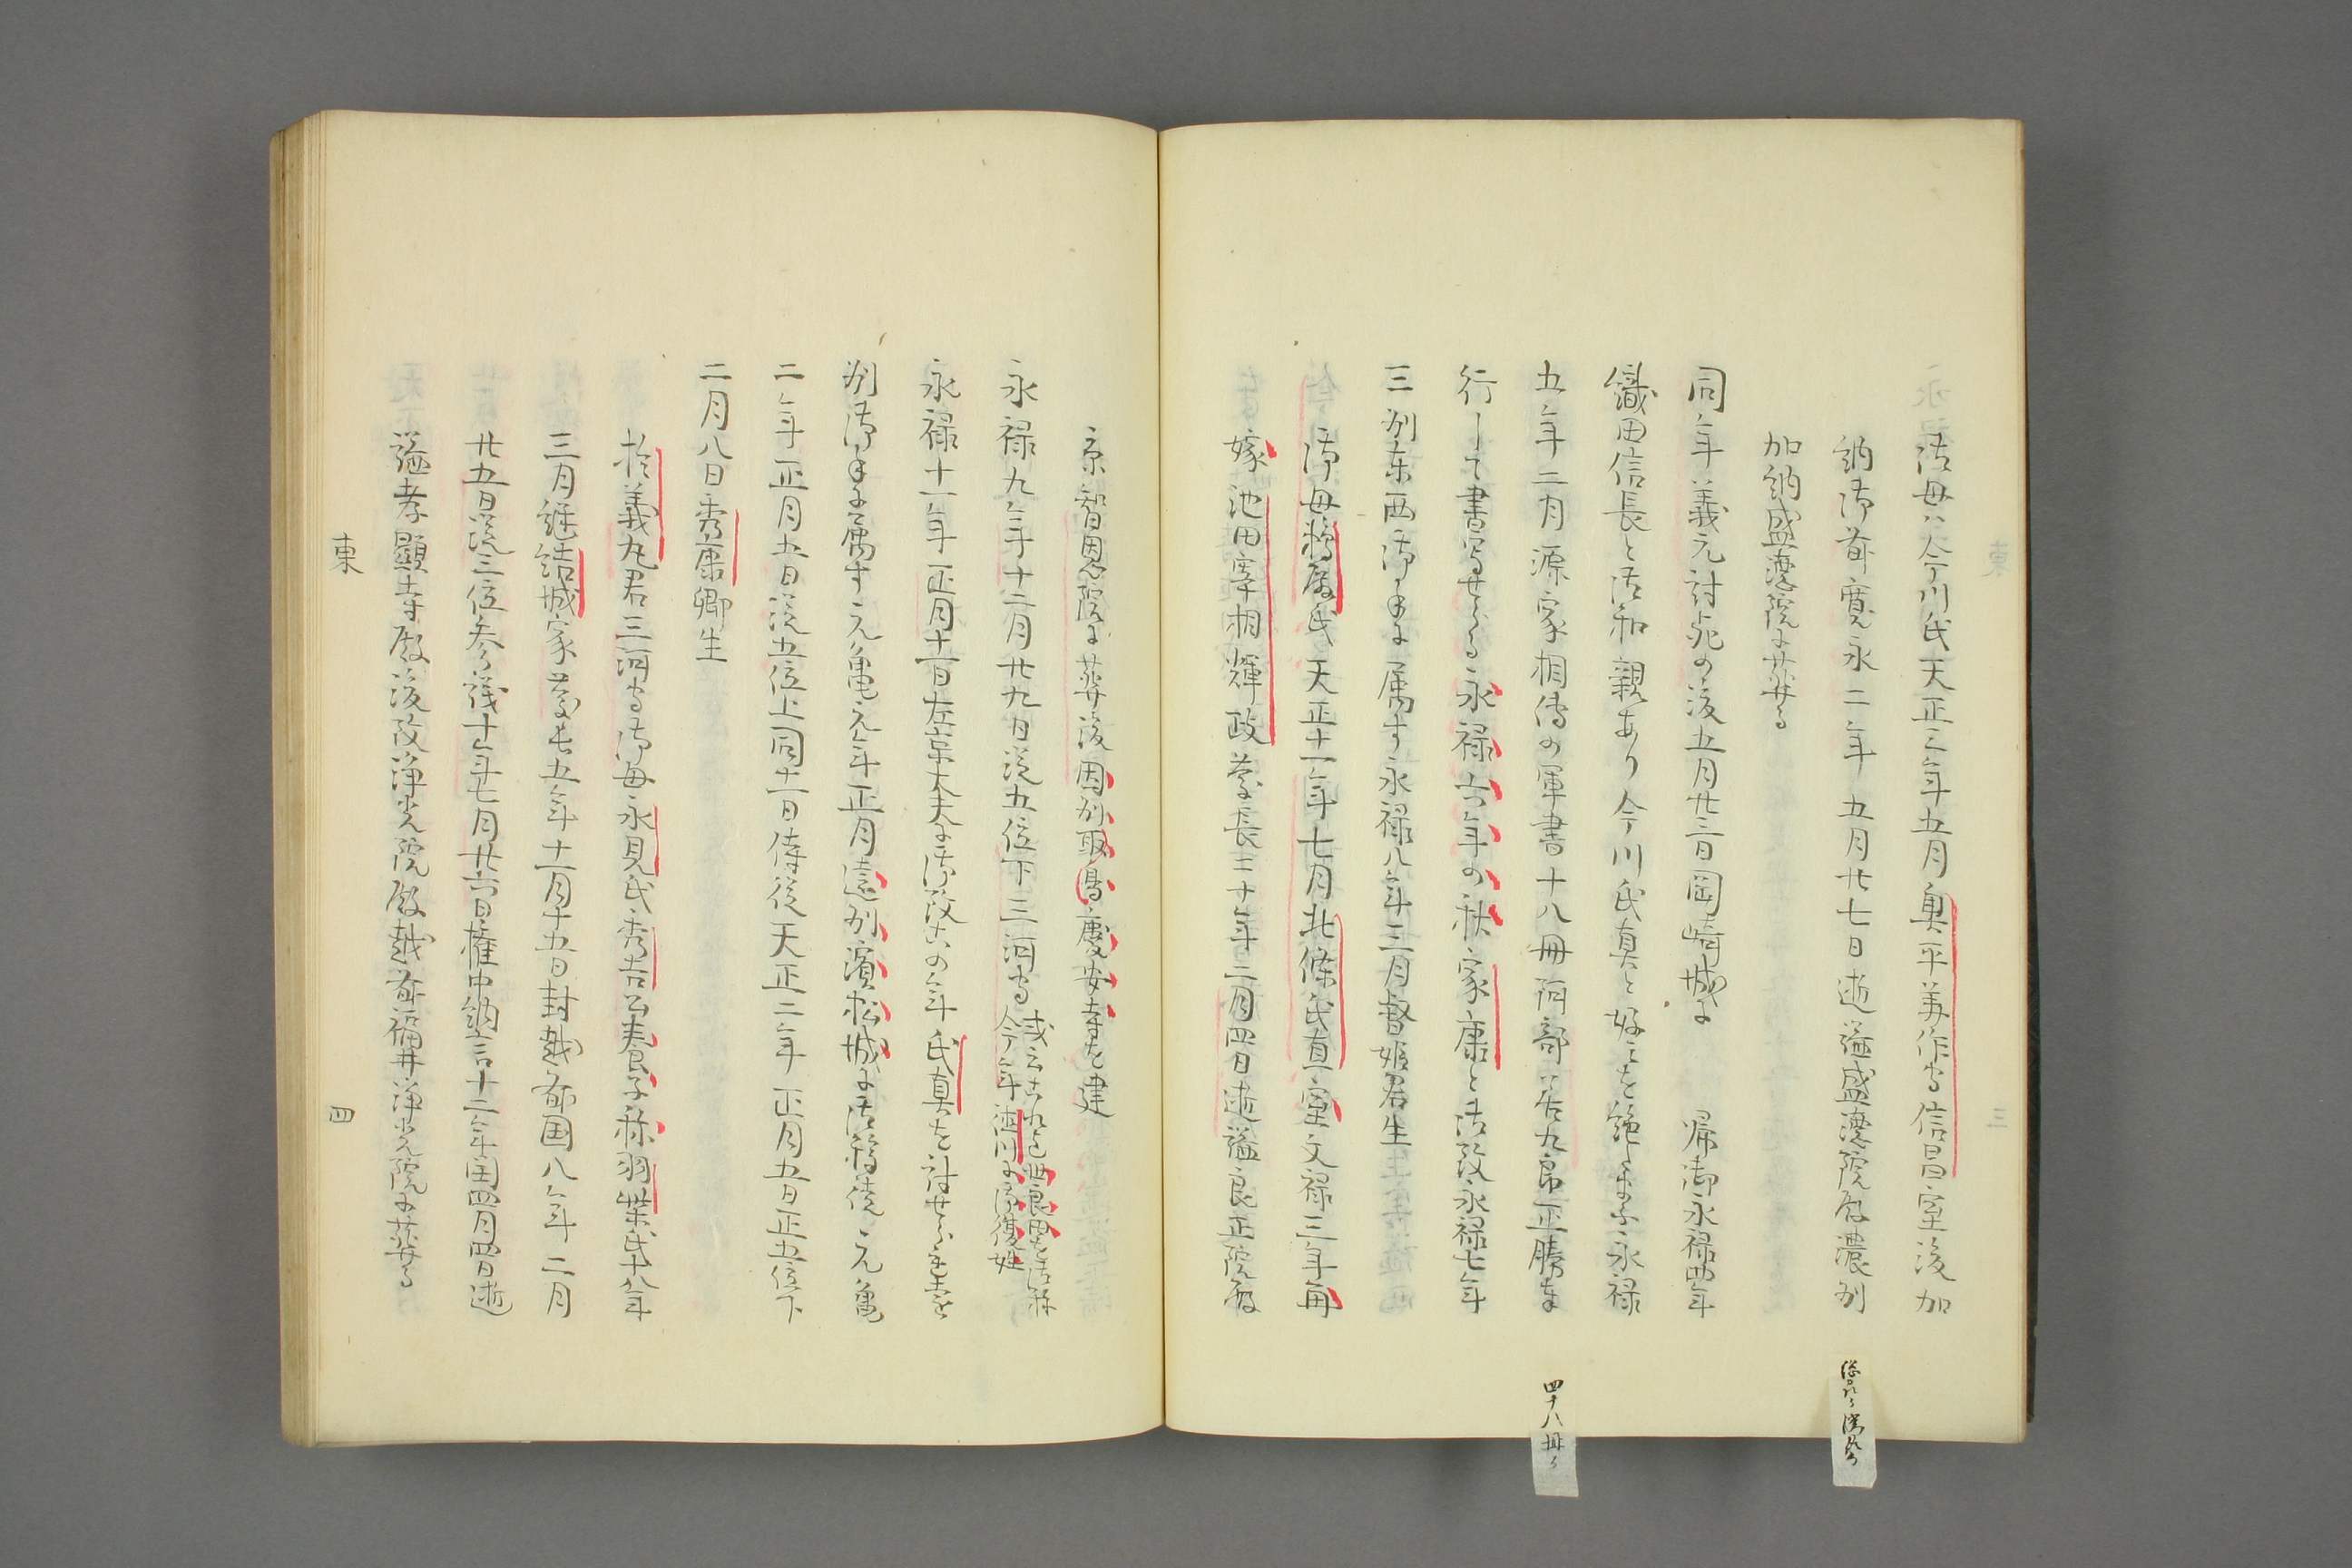 御母ハ今川氏天正三年五月奥平美作守信昌室後加
納御前寛永二年五月廿七日逝謚盛徳院殿濃州
加納盛徳院に葬る
同年義元討死の後五月廿三日岡崎城に 帰御永禄四年
織田信長と御和親あり今川氏真と好みを絶しまふ永禄
五年二月源家相傳の軍書十八冊阿部善九郎正勝を
行して書寫せらる永禄六年の秋家康と御改永禄七年
三州東西御手に属す永禄八年三月督姫君生
御母鵜殿氏天正十一年七月北條氏直室文禄三年再
嫁池田宰相輝政慶長二十年二月四日逝謚良正院殿
京智恩院に葬後因州取鳥慶安寺を建
永禄九年十二月廿九日従五位下三河守
或云大九迄世良田を御称
今年徳川に御復姓
永禄十一年正月十一日左京大夫に御改其の年氏真を討せられ遠
州御手に属す元亀元年正月遠州濱松城に御移徙元亀
二年正月五日従五位上同十一日侍従天正二年正月五日正五位下
二月八日秀康卿生
於義丸君三河守御母永見氏秀吉公養子称羽柴氏十八年
三月継結城家慶長五年十一月十五日封越前国八年二月
廿五日従三位参議十年七月廿六日権中納言十二年閏四月四日逝
謚孝顕寺殿後改浄光院殿越前福井浄光院に葬る
東 四
四十八冊